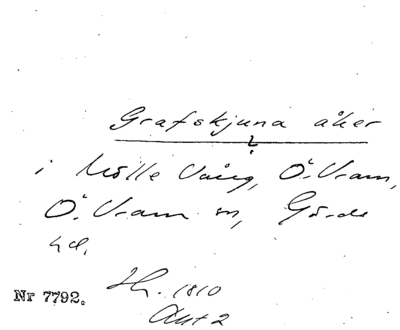 Grafskjuna åker
?
i Mölle Vång, Ö. Vram,
Ö. Vram sn, Gärds
hd.
Hh. 1810
Akt 2
Nr 7792.